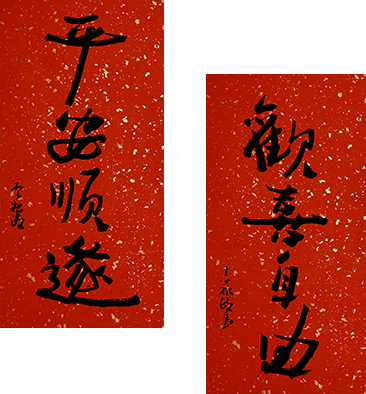 平安順遂
歡喜自由